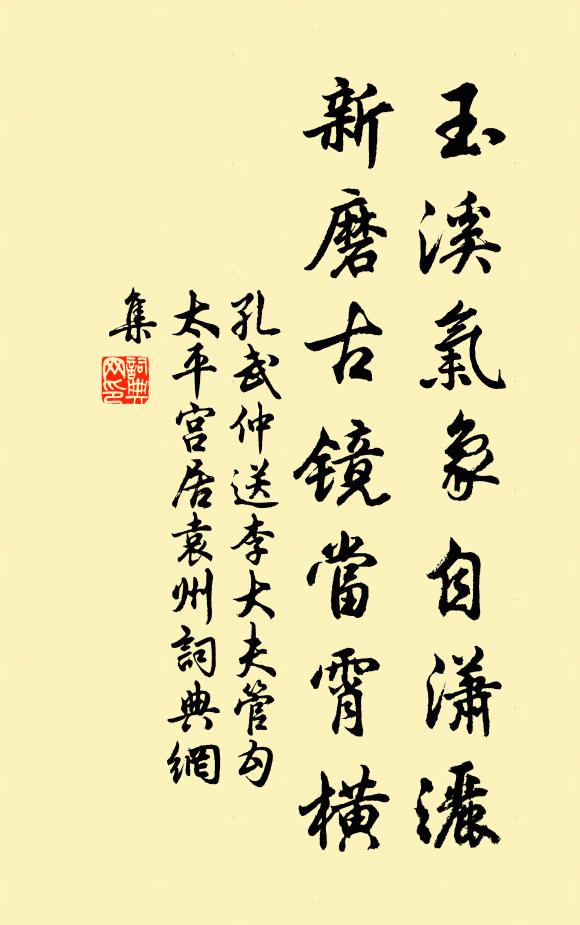 玉溪氣象自瀟灑
新磨古镜當霄橫
孔武仲送李大夫管勾
太平宮居袁州詞典網
集
詞典
网印